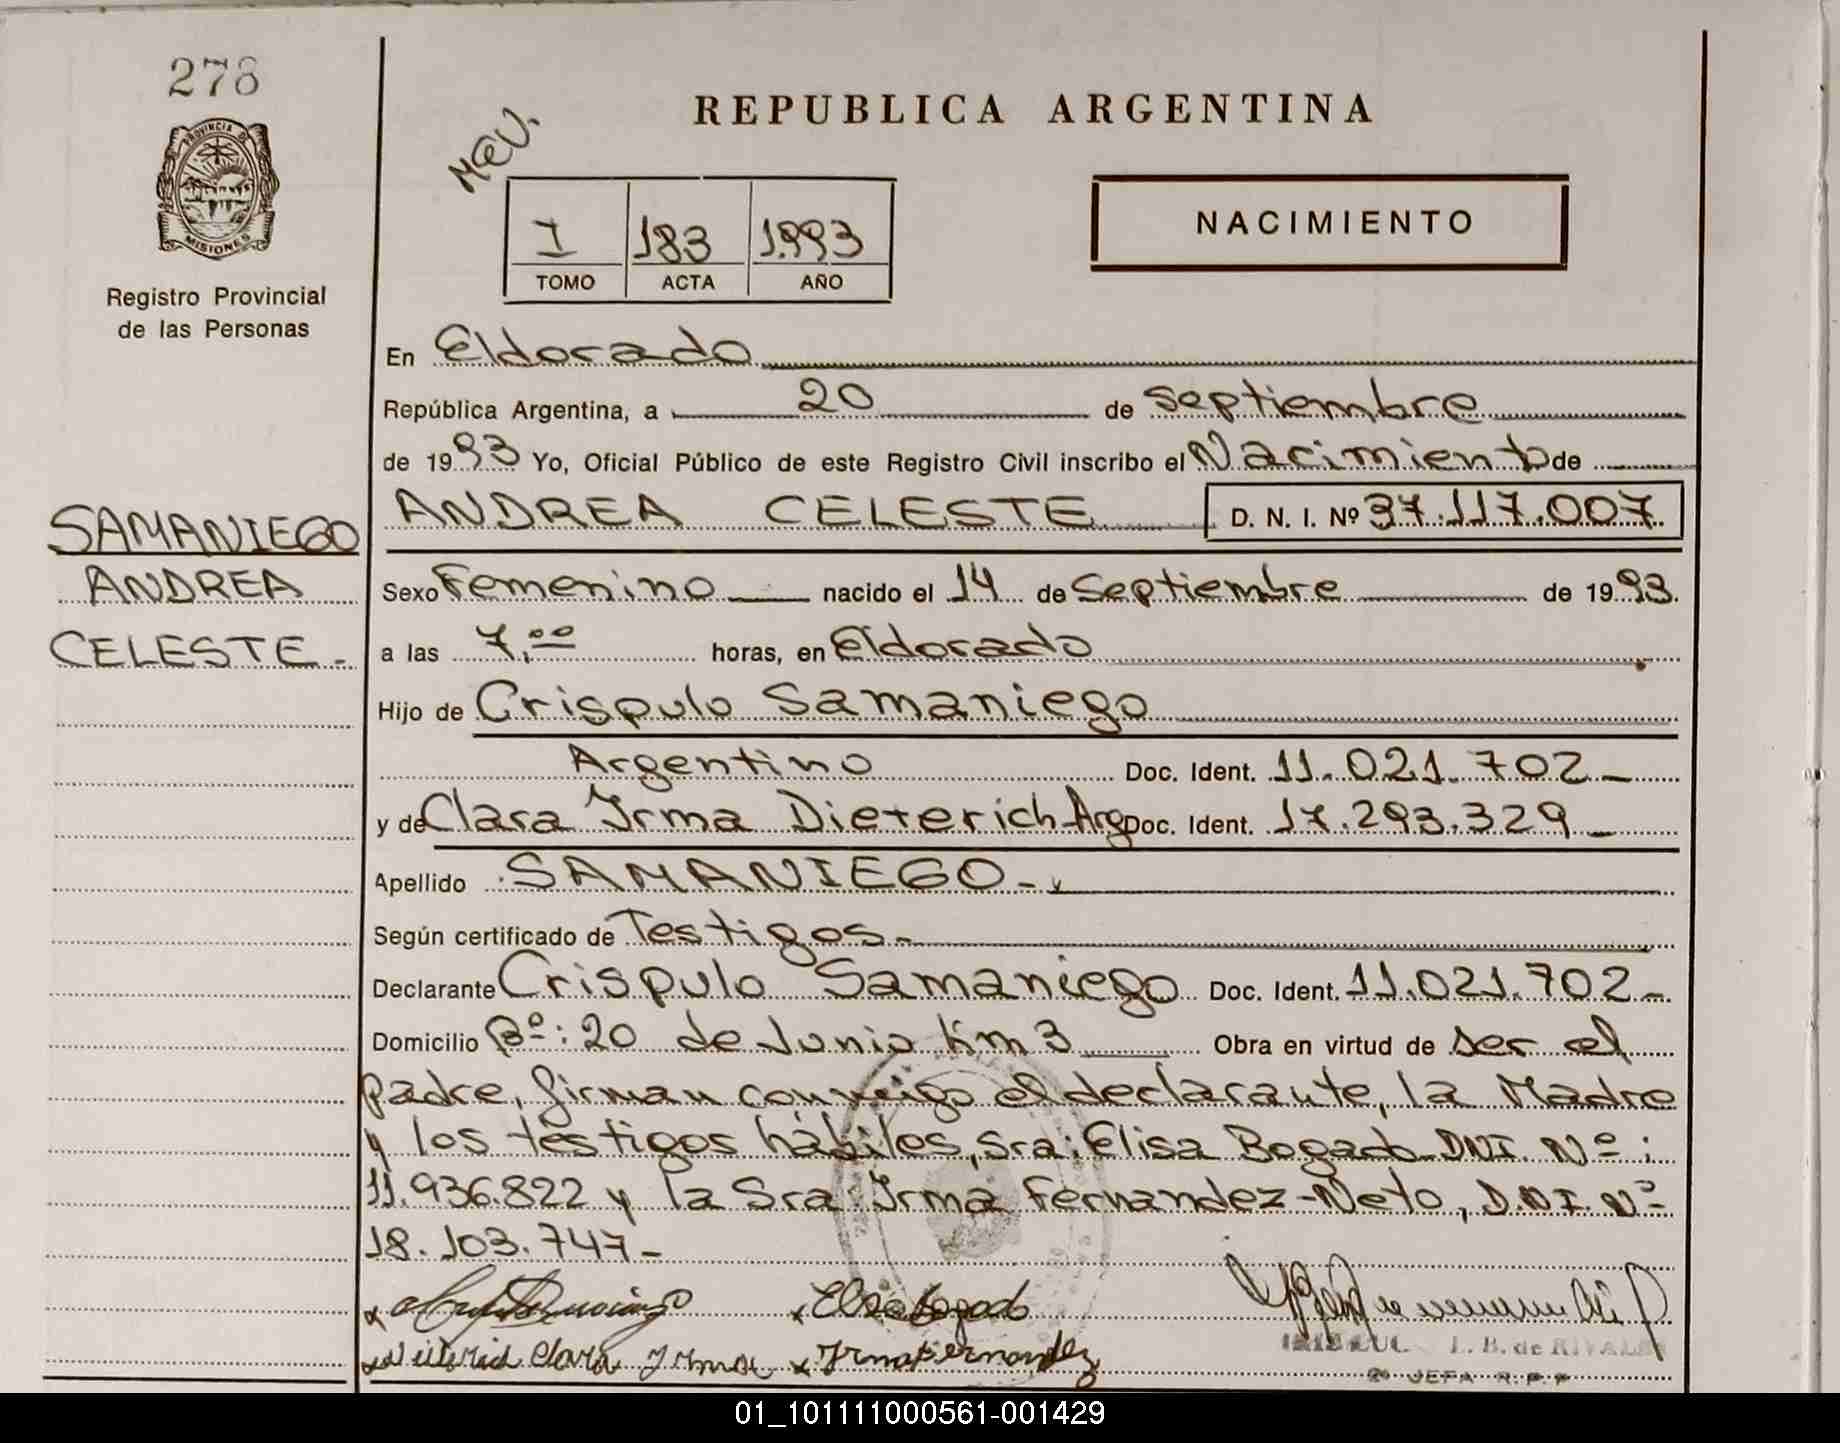 278
PROVINCIA DE
MISIONES
Registro Provincial
de las Personas
SAMANIEGO
ANDREA
CELESTE.-
REPUBLICA ARGENTINA
I 183 1.993
TOMO ACTA AÑO
NACIMIENTO
En Eldorado
República Argentina, a 20 de septiembre
de 1993 Yo, Oficial Público de este Registro Civil inscribo el Nacimiento de
ANDREA CELESTE D. N. I. Nº 37.117.007
Sexo Femenino nacido el 14 de Septiembre de 1993.
a las 7,ºº horas, en Eldorado
Hijo de Crispulo Samaniego
Argentino Doc. Ident. 11.021.702-
y de Clara Irma Dieterich Arg Doc. Ident. 17.293.329-
Apellido SAMANIEGO-
Según certificado de Testigos-
Declarante Crispulo Samaniego Doc. Ident. 11.021.702-
Domicilio Bº: 20 de Junio km 3 Obra en virtud de ser el
padre, firman conmigo el declarante, la Madre
y los testigos hábiles, Sra: Elisa Bogado DNI. Nº:
11.936.822 y la Sra: Irma Fernandez-Neto, D.N.I. Nº
18.103.747-
Elisa Bogado
Clara Irma x Irma Fernandez
I. B. de RIVALS
JEFA R.P.P
01_101111000561-001429